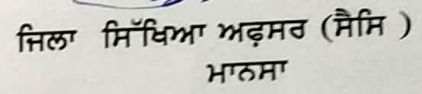 ਜਿਲਾ ਸਿੱਖਿਆ ਅਫ਼ਸਰ (ਸੈਸਿ )
ਮਾਨਸਾ